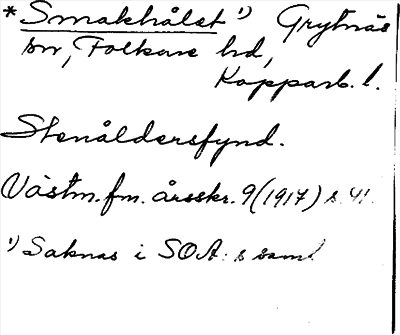 * Smakhålet 1) Grytnäs
sn, Folkare hd,
Kopparb. l.
Stenåldersfynd.
Västm. fm. årsskr. 9 (1917) s. 41.
1) Saknas i SOA:s saml